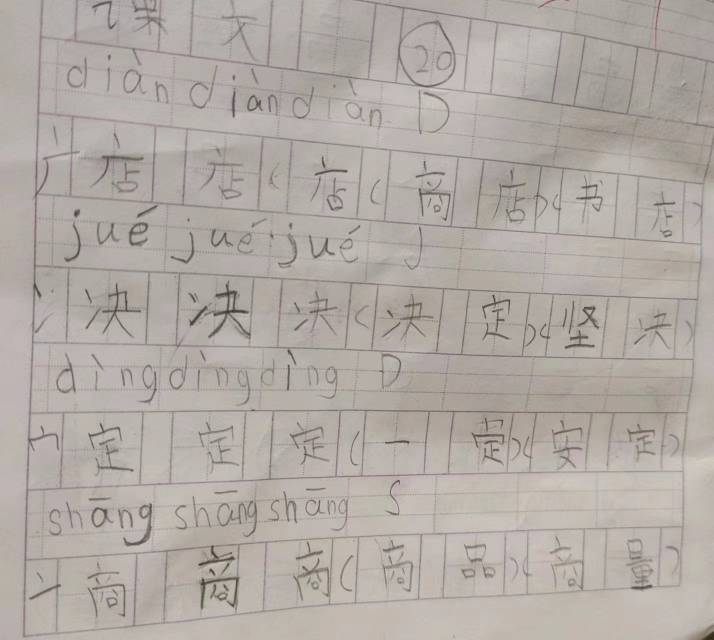 课文 20
diàn diàn diàn D
广 店 店 店 (商店)(书店)
jué jué jué J
冫 决 决 决 (决定)(坚决)
dìng dìng dìng D
宀 定 定 定 (一定)(安定)
shāng shāng shāng S
亠 商 商 商 (商品)(商量)